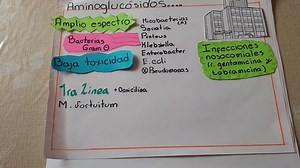 Aminoglucósidos.....
Amplio espectro
Bacterias
Gram ⊖
Baja toxicidad
Micobacterias
Serratia
Proteus
Klebsiella
Enterobacter
E. coli
Pseudomonas
Infecciones
nosocomiales
(r. gentamicina y
tobramicina)
1ra línea + Oxacilina
M. fortuitum